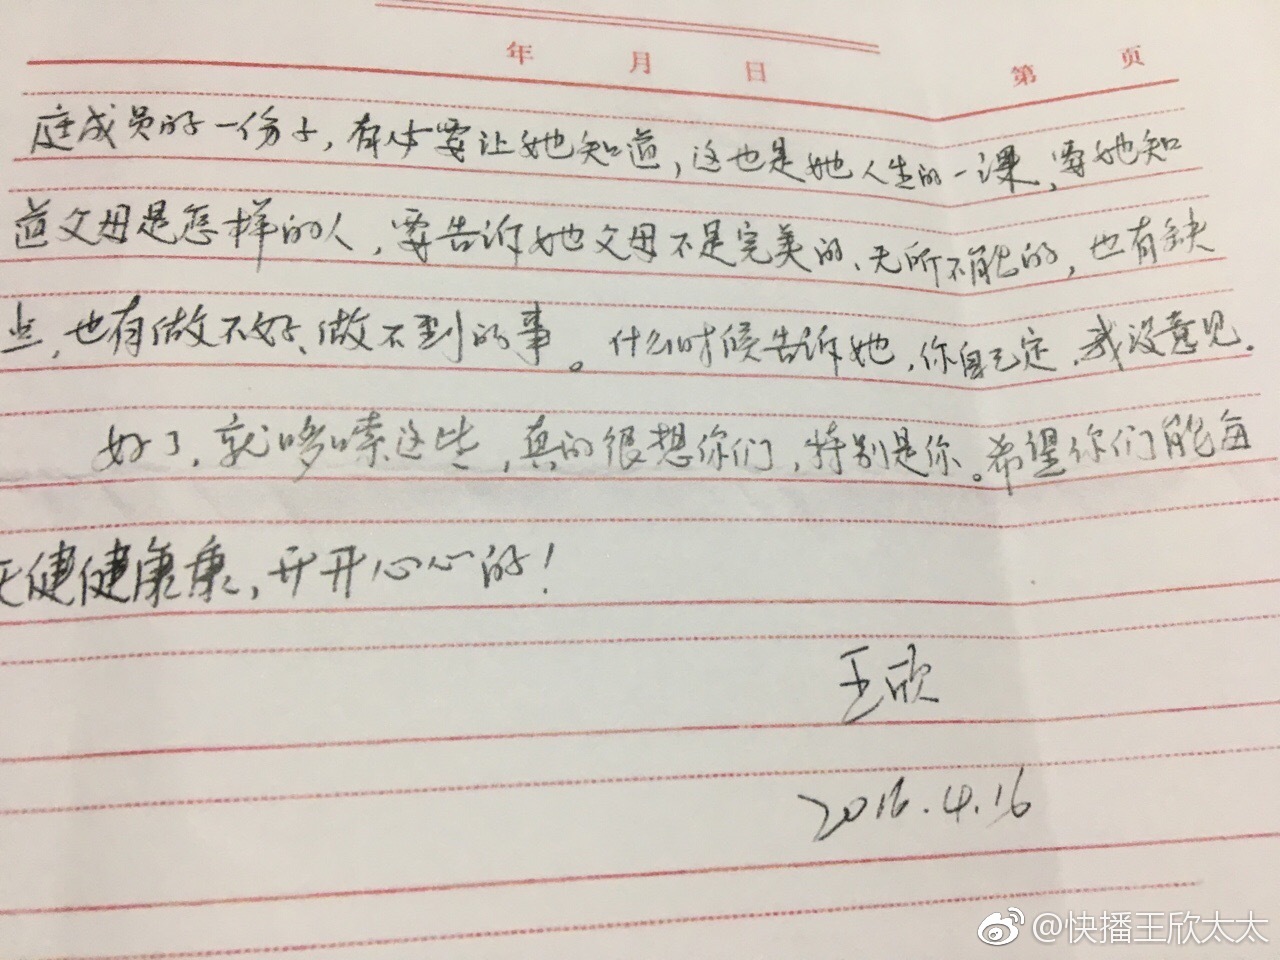 年 月 日
第 页
庭成员的一份子，有必要让她知道，这也是她人生的一课，要她知
道父母是怎样的人，要告诉她父母不是完美的、无所不能的，也有缺
点，也有做不好、做不到的事。什么时候告诉她，你自己定，我没意见。
好了，就哆嗦这些，真的很想你们，特别是你。希望你们能每
天健健康康，开开心心的！
王欣
2016.4.16
@快播王欣太太